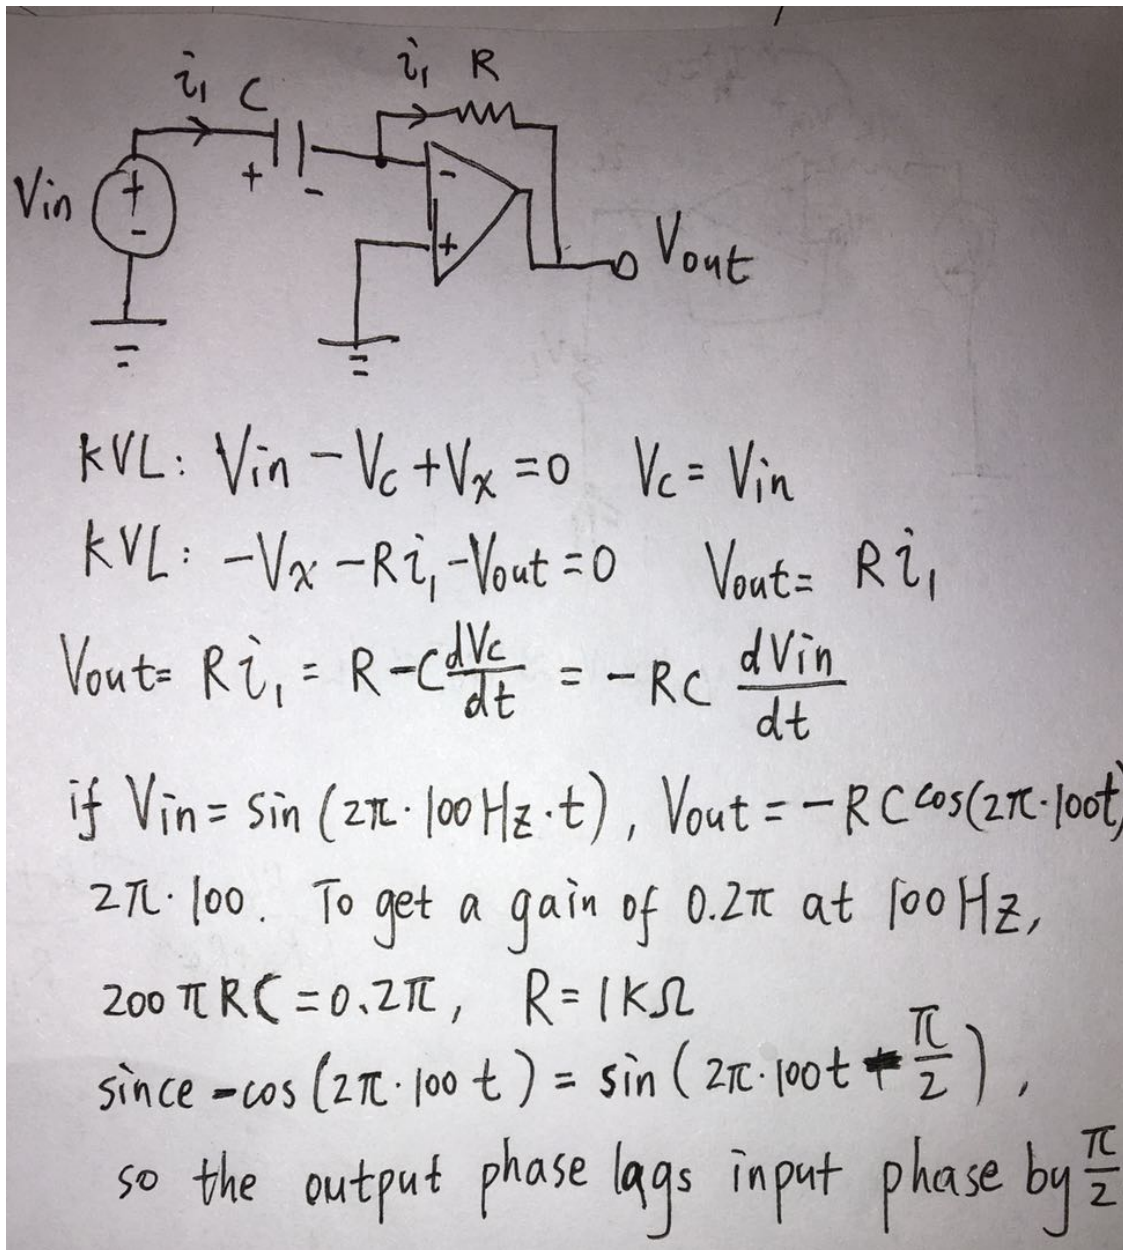 i₁ C i₁ R
Vin + - + - - + Vout
KVL: Vin - Vc + Vx = 0 Vc = Vin
KVL: -Vx - Ri₁ - Vout = 0 Vout = Ri₁
Vout = Ri₁ = R - C dVc/dt = - RC dVin/dt
if Vin = sin (2π · 100 Hz · t), Vout = - RC cos(2π · 100t)
2π · 100. To get a gain of 0.2π at 100 Hz,
200 π RC = 0.2π, R = 1KΩ
since - cos (2π · 100 t) = sin (2π · 100t - π/2),
so the output phase lags input phase by π/2